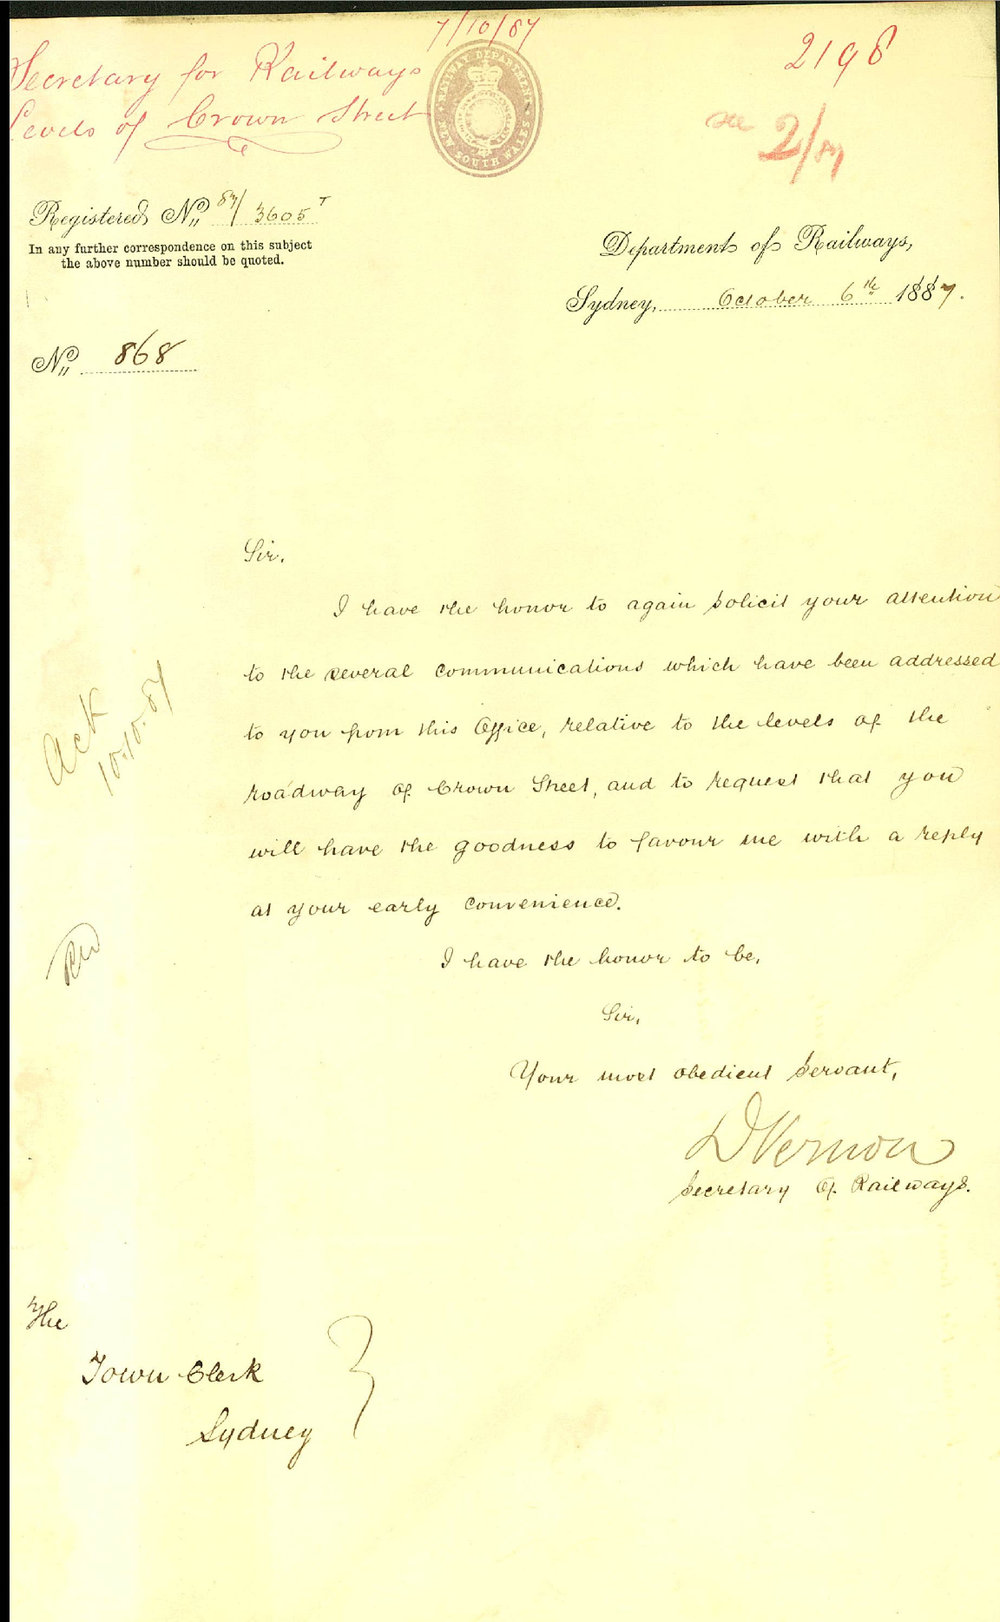 7/10/87
Secretary for Railways
Levels of Crown Street
RAILWAY DEPARTMENT
NEW SOUTH WALES
2198
2/87
Registered No 87/3605 T
In any further correspondence on this subject
the above number should be quoted.
Department of Railways,
Sydney, October 6th 1887.
No 868
Sir,
I have the honor to again solicit your attention
to the several communications which have been addressed
to you from this Office, relative to the levels of the
roadway of Crown Street, and to request that you
will have the goodness to favour me with a reply
at your early convenience.
I have the honor to be,
Sir,
Your most obedient Servant,
D Vernon
Secretary of Railways.
Ack
10.10.87
The
Town Clerk
Sydney